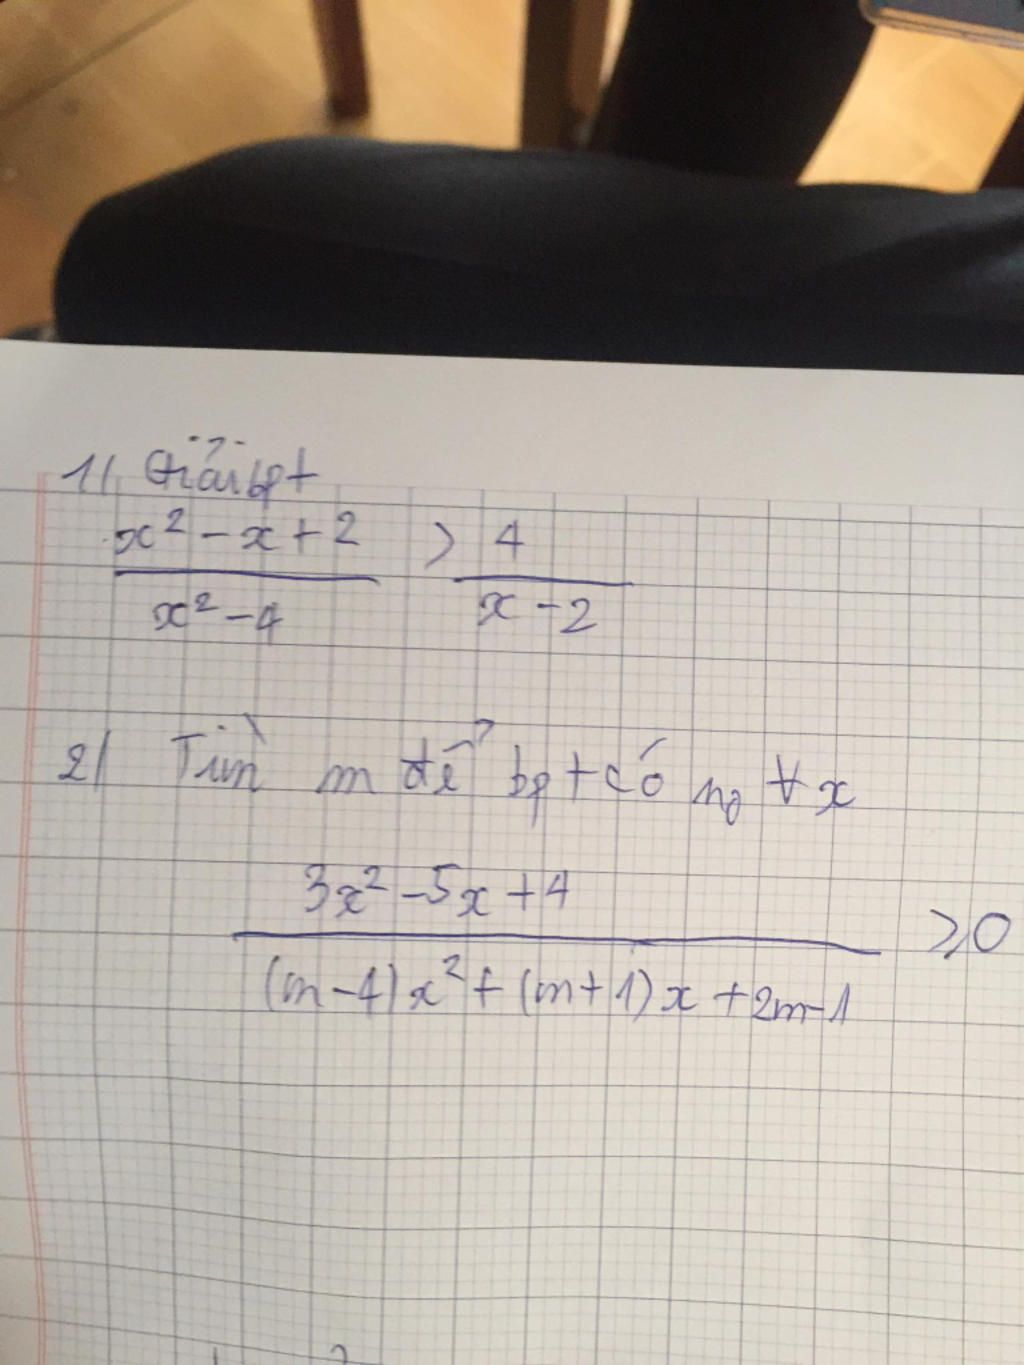 1/ Giải bpt
x² - x + 2 / x² - 4 > 4 / x - 2
2/ Tìm m để bpt có no ∀ x
3x² - 5x + 4 / (m - 4)x² + (m + 1)x + 2m - 1 ≥ 0